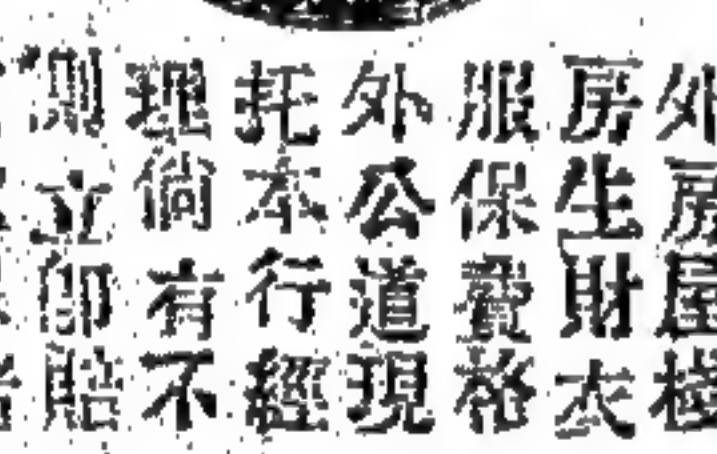 外房屋棧
房生財衣
服保費格
外公道現
托本行經
理倘有不
測立卽賠